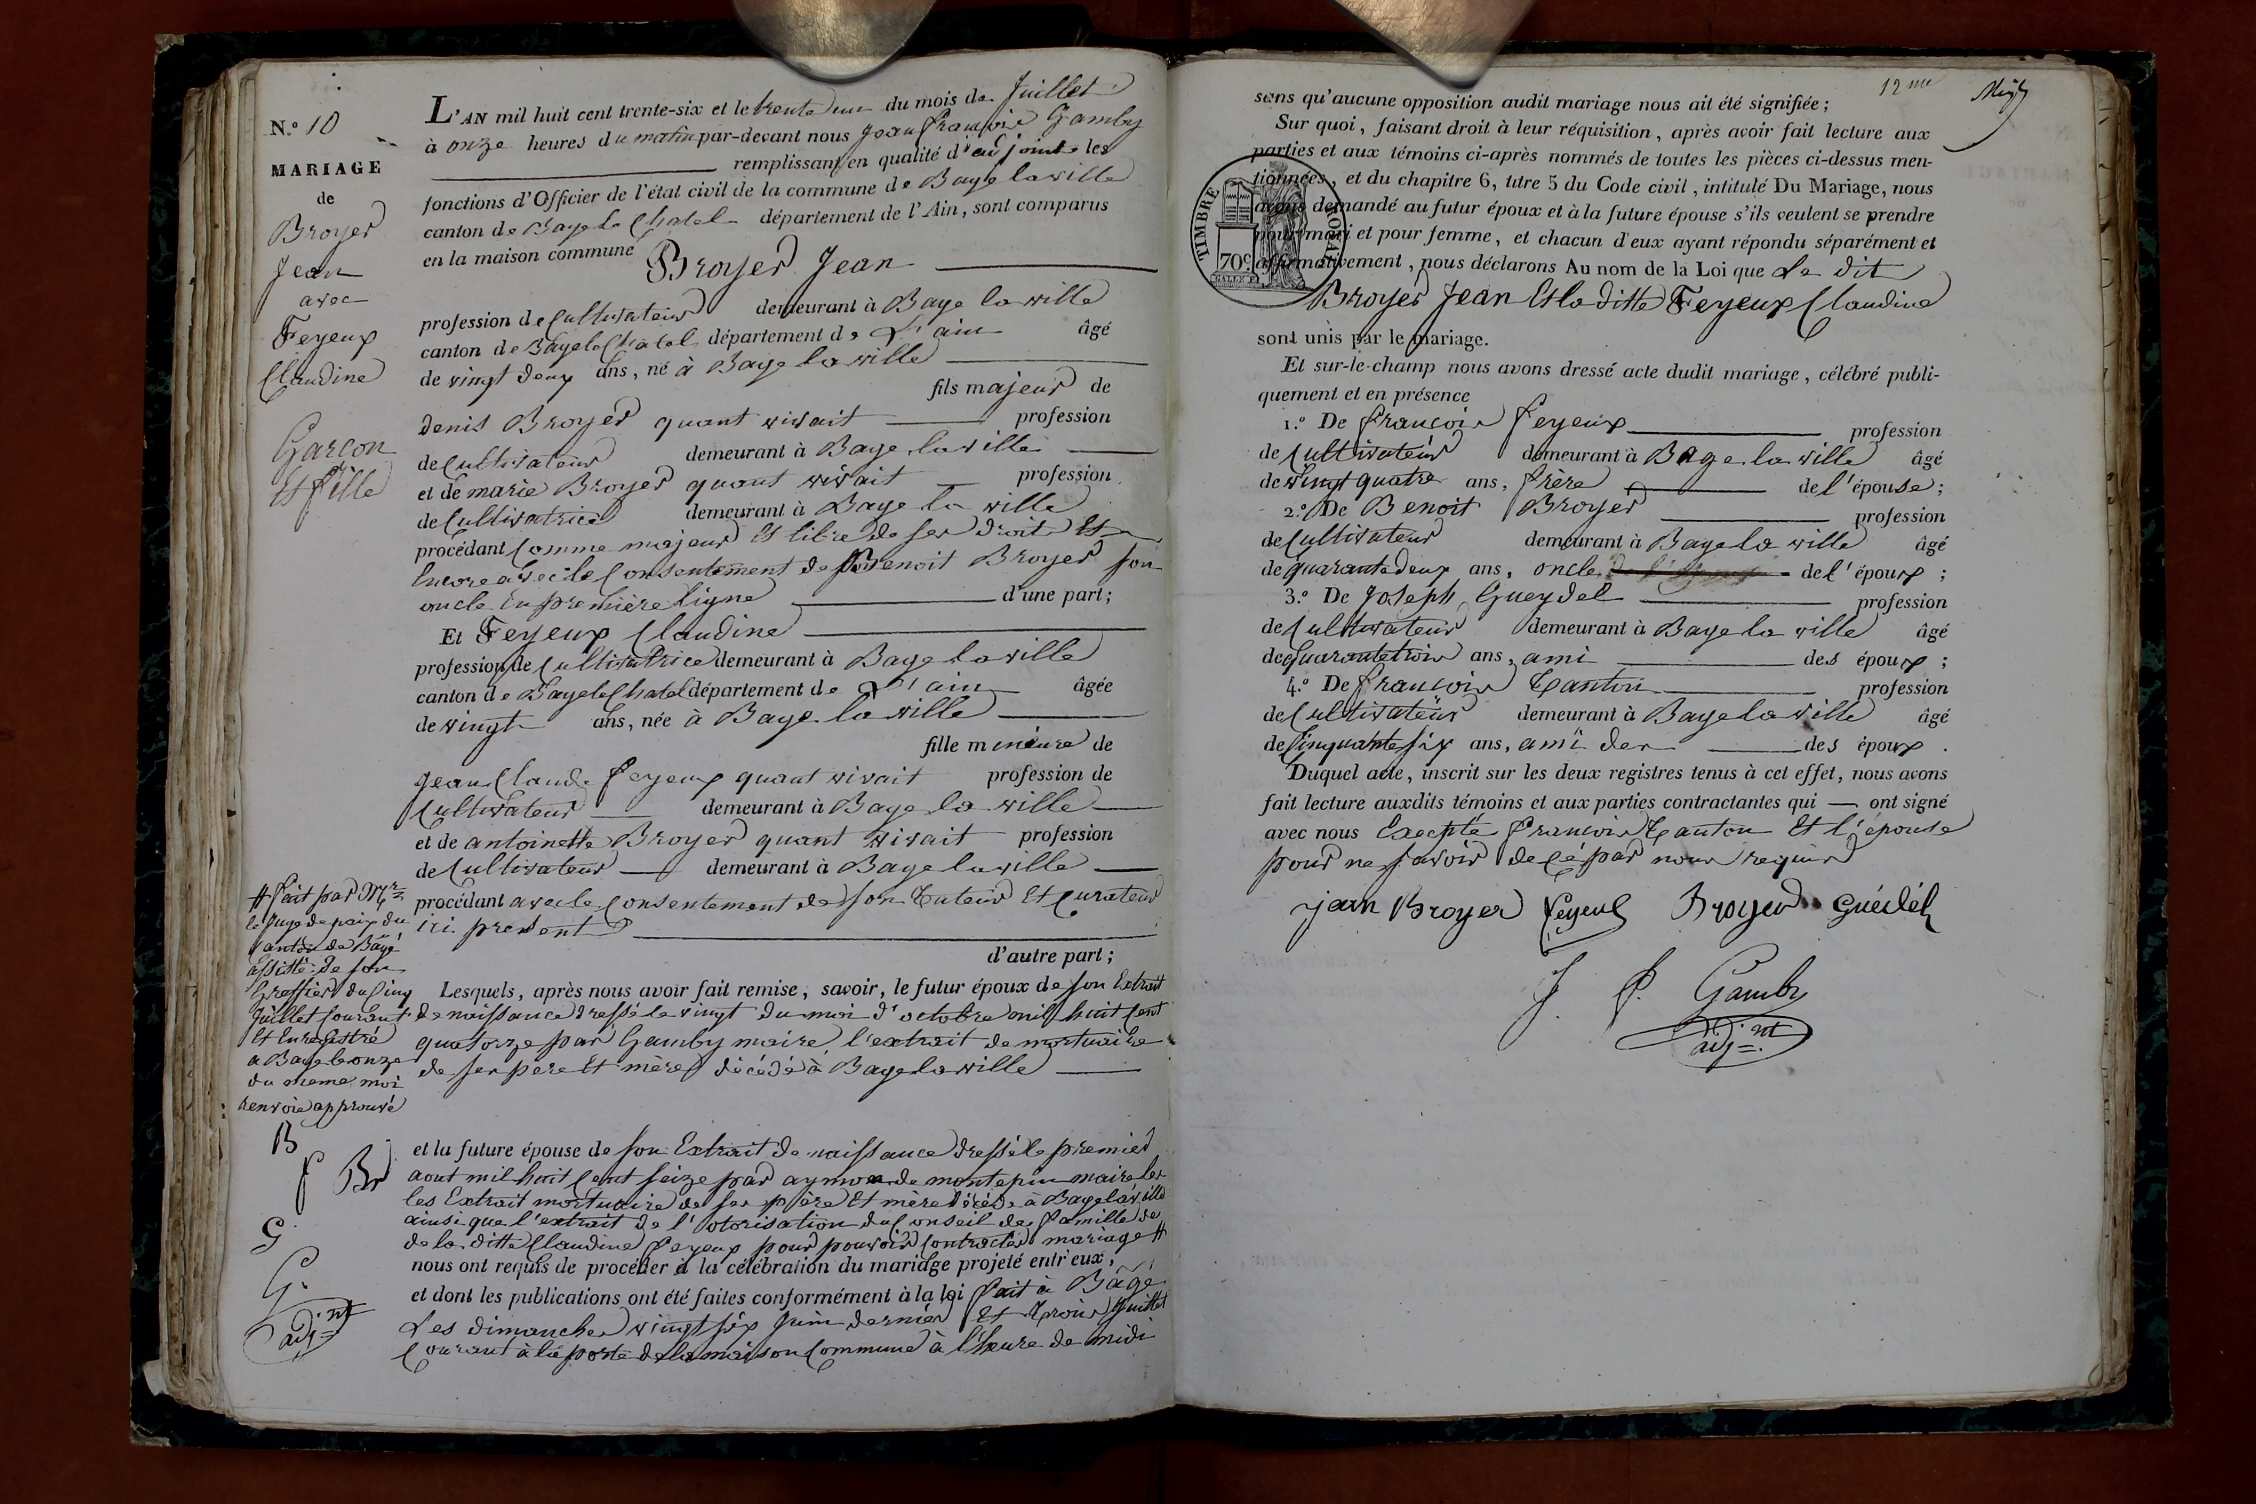 N.o 10
MARIAGE
de
Broyer
Jean
avec
Feyeux
Claudine
Garçon
Et fille
L'AN mil huit cent trente-six et le trente un du mois de Juillet
à onze heures du matin par-devant nous Jean françois Gamby
remplissant en qualité d'adjoint les
fonctions d'Officier de l'état civil de la commune de Bage la ville
canton de Bage le Chatel département de l'Ain, sont comparus
en la maison commune Broyer Jean
profession de Cultivateur demeurant à Bage la ville
canton de Bage le Chatel département de L'ain âgé
de vingt deux ans, né à Bage la ville
fils majeur de
denis Broyer quant vivait profession
de Cultivateur demeurant à Bage la ville
et de marie Broyer quant vivait profession
de Cultivatrice demeurant à Bage la ville
procédant Comme majeur Et libre de ses droit Et
Encore avec le Consentement de Benoit Broyer son
oncle En première Ligne d'une part;
Et Feyeux Claudine
profession de Cultivatrice demeurant à Bage la ville
canton de Bage le Chatel département de L'ain âgée
de vingt ans, née à Bage la ville
fille mineure de
Jean Claude feyeux quant vivait profession de
Cultivateur demeurant à Bage la ville
et de antoinette Broyer quant vivait profession
de Cultivateur demeurant à Bage la ville
procédant avec le Consentement de son Tuteur Et Curateur
ici present
d'autre part;
Lesquels, après nous avoir fait remise, savoir, le futur époux de son Extrait
de naissance dressé le vingt du moi d'octobre mil huit Cent
quatorze par Gamby maire, l'extrait de mortuaire
de ses pere Et mère décédé à Bage la ville
et la future épouse de son Extrait de naissance dressé le premier
aout mil huit Cent seize par aymon de montepin maire les
les Extrait mortuaire de ses père Et mère décédé à Bage la ville
ainsi que l'extrait de l'otorisation du Conseil de famille de
de la ditte Claudine feyeux pour pouvoir Contracter mariage #
nous ont requis de procéder à la célébration du mariage projeté entr'eux,
et dont les publications ont été faites conformément à la loi fait à Bâgé
Les dimanches vingt six Juin dernier Et trois Juillet
Courant à la porte de la maison Commune à l'heure de midi
# fait par Mr
le Juge de paix du
Canton de Bâgé
assisté de son
Greffier du Cinq
Juillet Courant
Et Enregistré
a Bage le onze
du meme moi
renvoie approuvé
B
f Br
G
G.
adj.nt
12me
sans qu'aucune opposition audit mariage nous ait été signifiée;
Sur quoi, faisant droit à leur réquisition, après avoir fait lecture aux
parties et aux témoins ci-après nommés de toutes les pièces ci-dessus men-
tionnées, et du chapitre 6, titre 5 du Code civil, intitulé Du Mariage, nous
avons demandé au futur époux et à la future épouse s'ils veulent se prendre
pour mari et pour femme, et chacun d'eux ayant répondu séparément et
affirmativement, nous déclarons Au nom de la Loi que Le dit
Broyer Jean Et la ditte Feyeux Claudine
sont unis par le mariage.
TIMBRE ROYAL
70c.
Et sur-le-champ nous avons dressé acte dudit mariage, célébré publi-
quement et en présence
1.o De françois feyeux profession
de Cultivateur demeurant à Bage la ville âgé
de vingt quatre ans, frère de l'épouse;
2.o De Benoit Broyer profession
de Cultivateur demeurant à Bage la ville âgé
de quarante deux ans, oncle de l'époux;
3.o De Joseph Gueydel profession
de Cultivateur demeurant à Bage la ville âgé
de quarante trois ans, ami des époux;
4.o De françois Tanton profession
de Cultivateur demeurant à Bage la ville âgé
de Cinquante six ans, ami des des époux.
Duquel acte, inscrit sur les deux registres tenus à cet effet, nous avons
fait lecture auxdits témoins et aux parties contractantes qui ont signé
avec nous Excepté françois Tanton Et l'épouse
pour ne savoir de Cé par nous requis
jean Broyer feyeux Broyer Guédél
J. f. Gamby
adj.nt